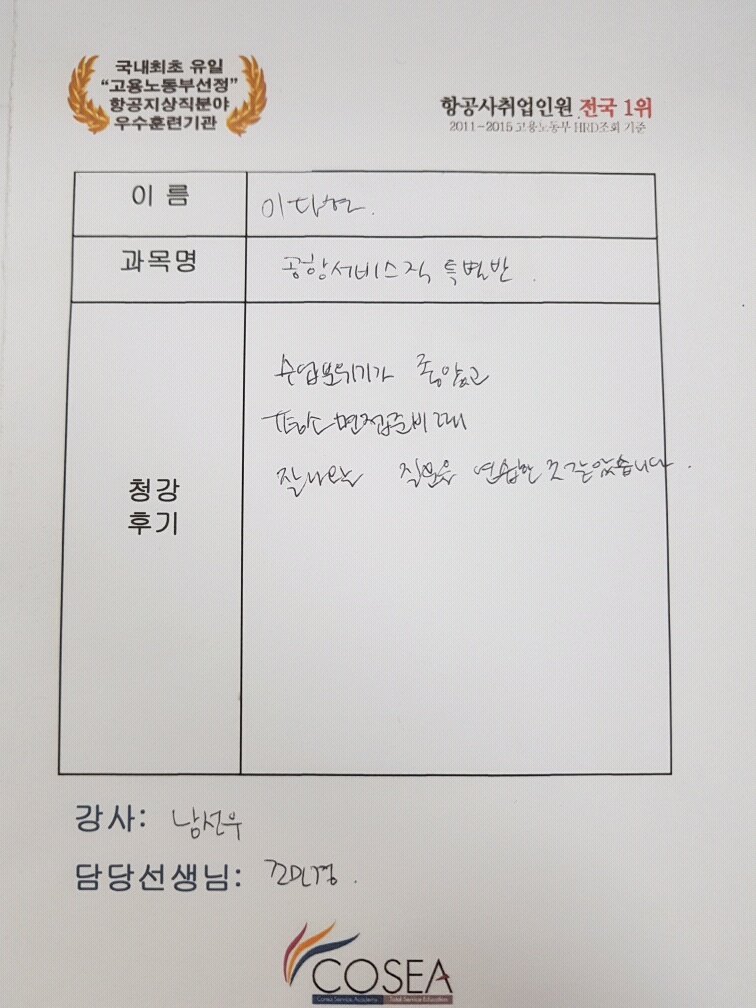 국내최초 유일
“고용노동부선정”
항공지상직분야
우수훈련기관
항공사취업인원 전국 1위
2011-2015 고용노동부 HRD조회 기준
이 름
이다현.
과목명
공항서비스직 특별반.
수업분위기가 좋았고
평소 면접준비 때
잘나오는 질문을 연습한 것 같았습니다.
청강
후기
강사: 남선우
담당선생님: 조민경.
COSEA
Korea Service Academy Total Service Education